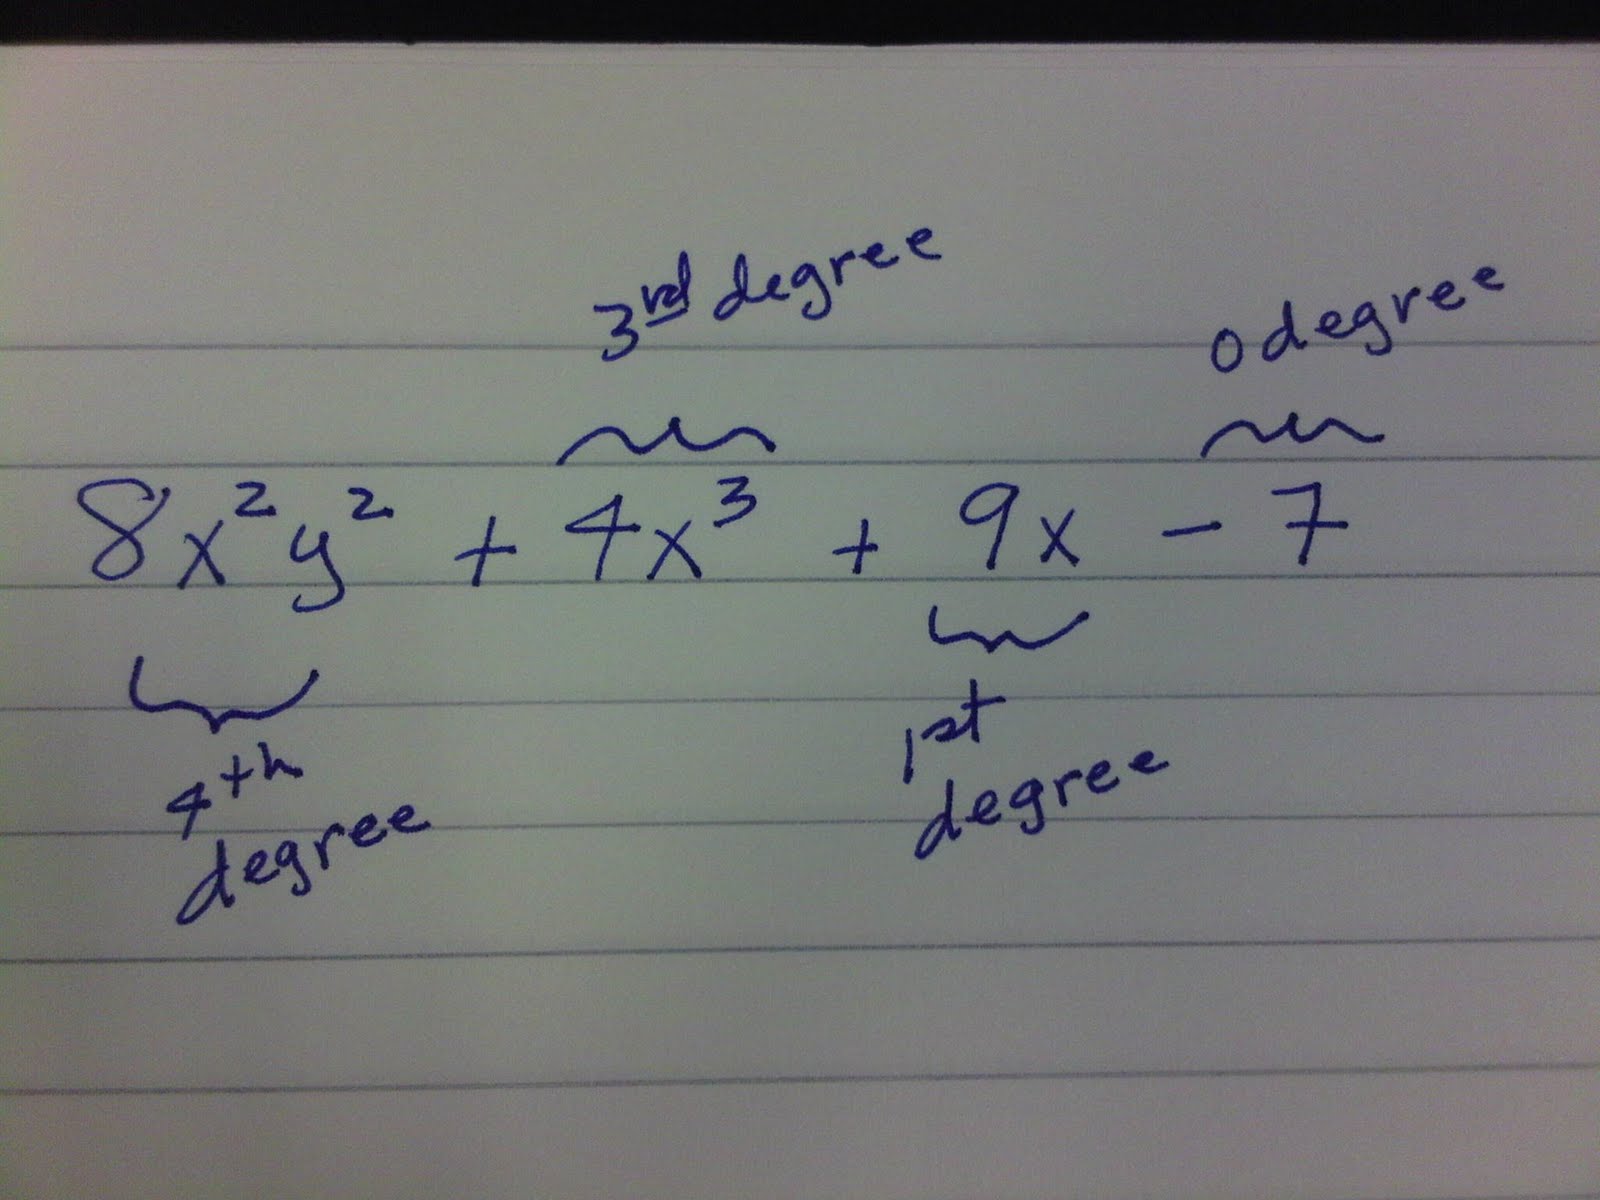 3rd degree
0 degree
8x²y² + 4x³ + 9x - 7
4th
degree
1st
degree